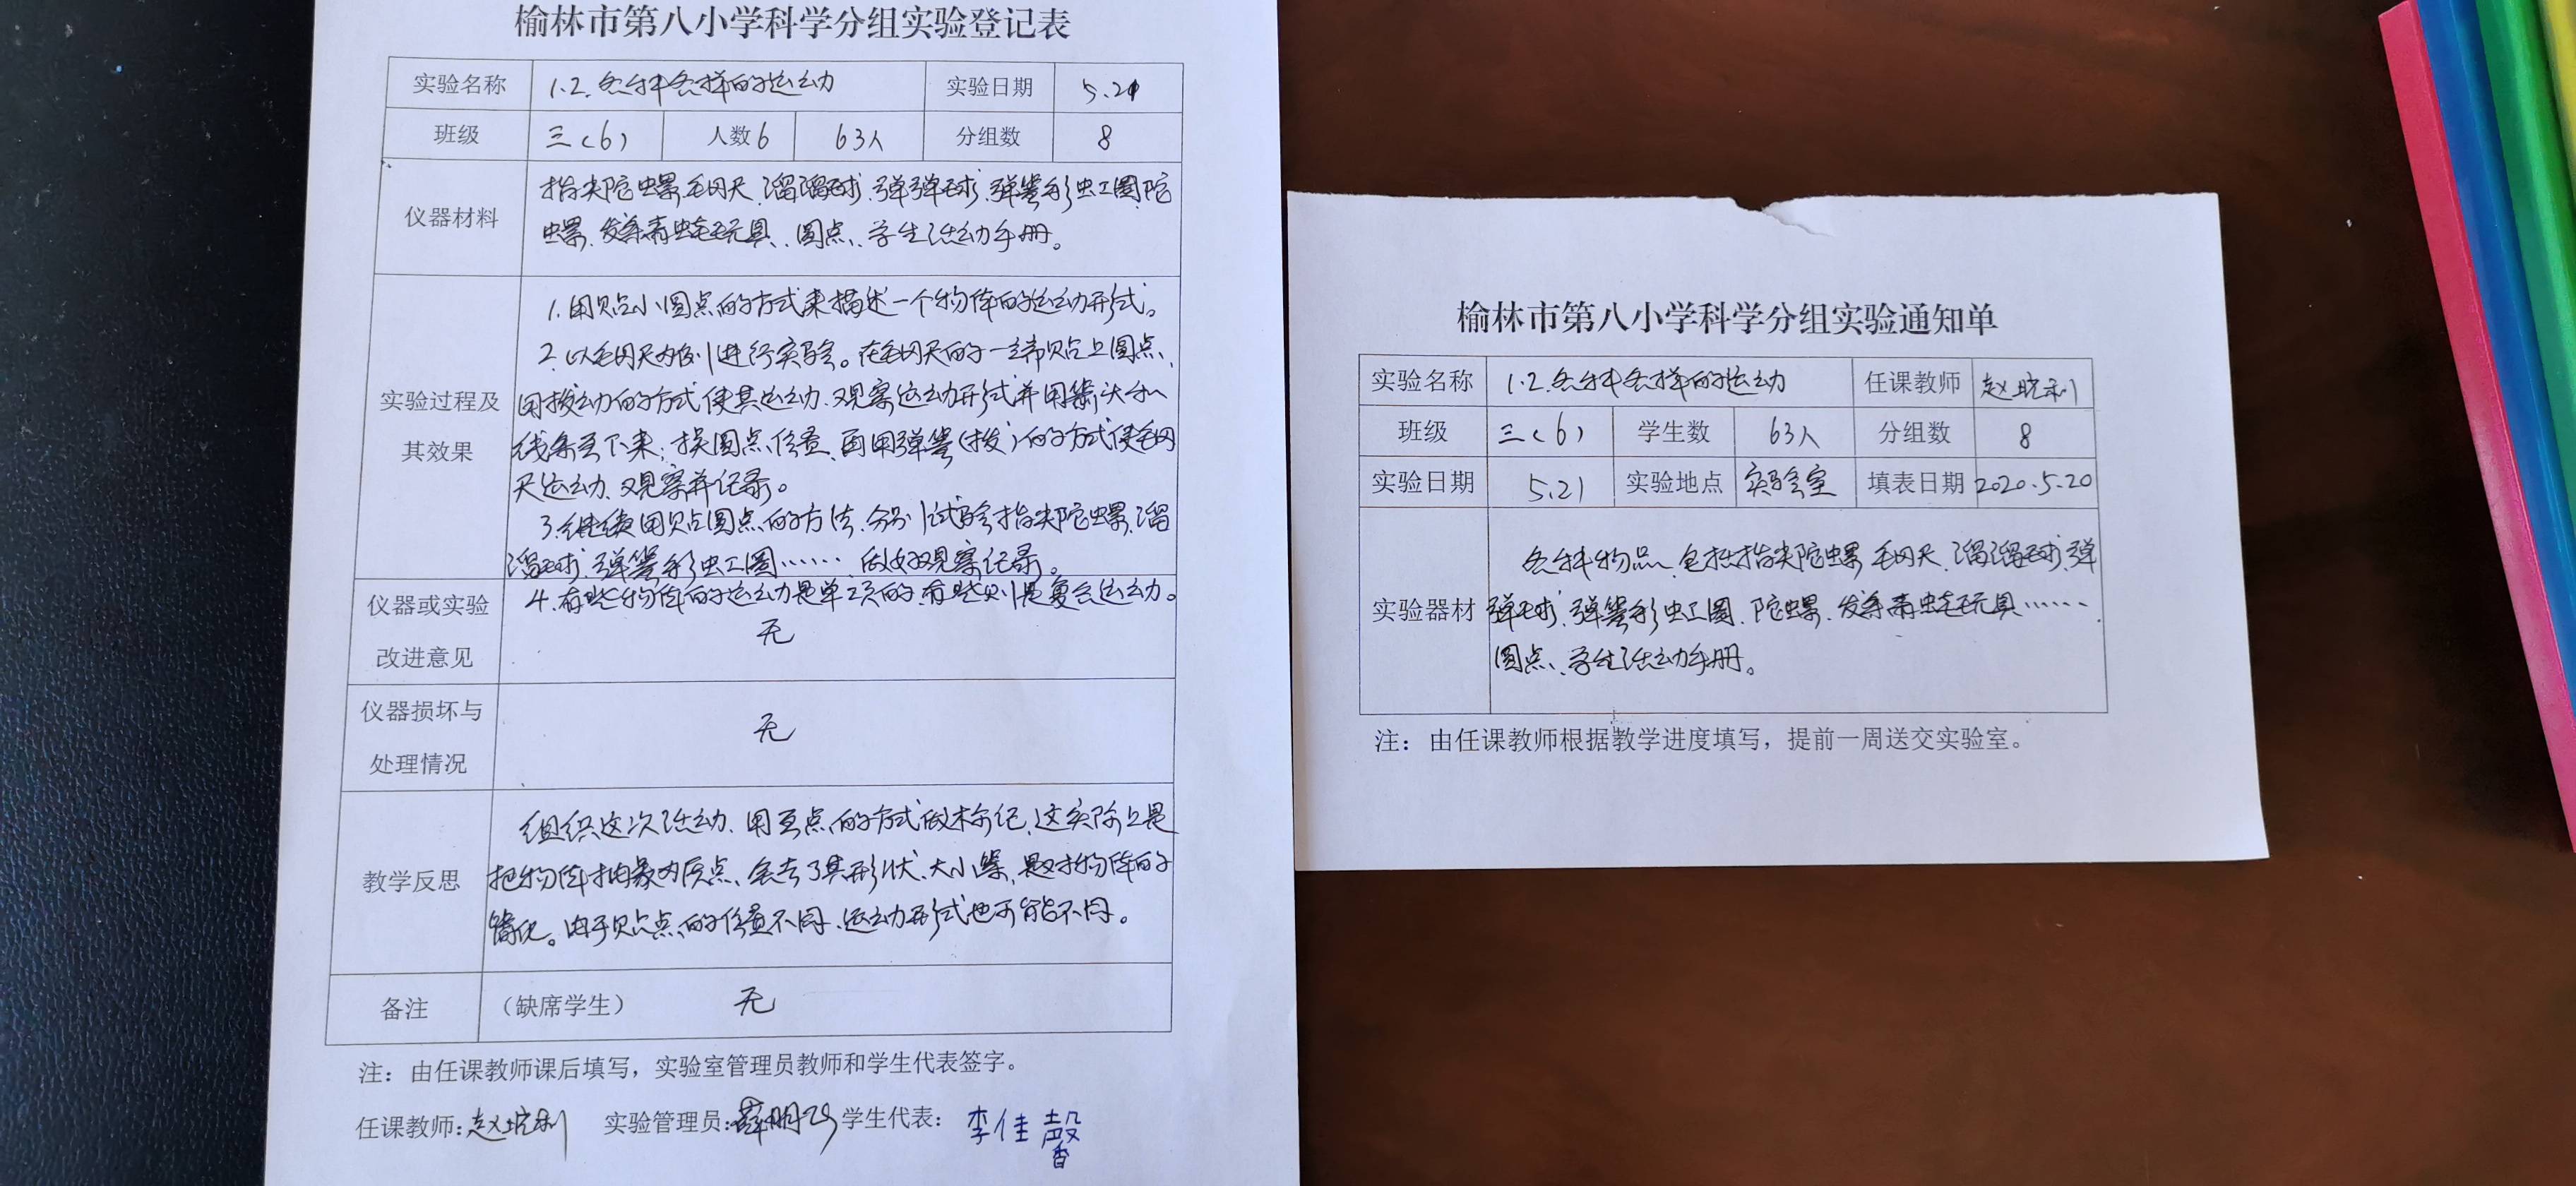 榆林市第八小学科学分组实验登记表
实验名称 1.2.各种各样的运动 实验日期 5.21
班级 三(6) 人数6 63人 分组数 8
仪器材料
指尖陀螺、毛网尺、溜溜球、弹弹球、弹簧形虫工圈、陀
螺、发条青蛙等玩具、圆点、学生活动手册。
实验过程及
其效果
1.用贴小圆点的方式来描述一个物体的运动形式。
2.以毛网尺为例进行实验。在毛网尺的一端贴上圆点、
用拨动的方式使其运动、观察运动形式并用箭头和
线条画下来；换圆点位置、再用弹簧(拨)的方式使毛网
尺运动、观察并记录。
3.继续用贴圆点的方法、分别试验指尖陀螺、溜
溜球、弹簧形虫工圈……、做好观察记录。
4.有些物体的运动是单项的,有些则是复合运动。
仪器或实验
改进意见
无
仪器损坏与
处理情况
无
教学反思
组织这次活动、用画点的方式做标记、这实际上是
把物体抽象为质点、舍去了其形状、大小等,是对物体的
简化。由于贴点的位置不同、运动形式也可能不同。
备注 (缺席学生) 无
注：由任课教师课后填写，实验室管理员教师和学生代表签字。
任课教师:赵晓利 实验管理员: 学生代表: 李佳馨
榆林市第八小学科学分组实验通知单
实验名称 1.2.各种各样的运动 任课教师 赵晓利
班级 三(6) 学生数 63人 分组数 8
实验日期 5.21 实验地点 实验室 填表日期 2020.5.20
实验器材
各种物品、包括指尖陀螺、毛网尺、溜溜球、弹
弹球、弹簧形虫工圈、陀螺、发条青蛙等玩具……、
圆点、学生活动手册。
注：由任课教师根据教学进度填写，提前一周送交实验室。